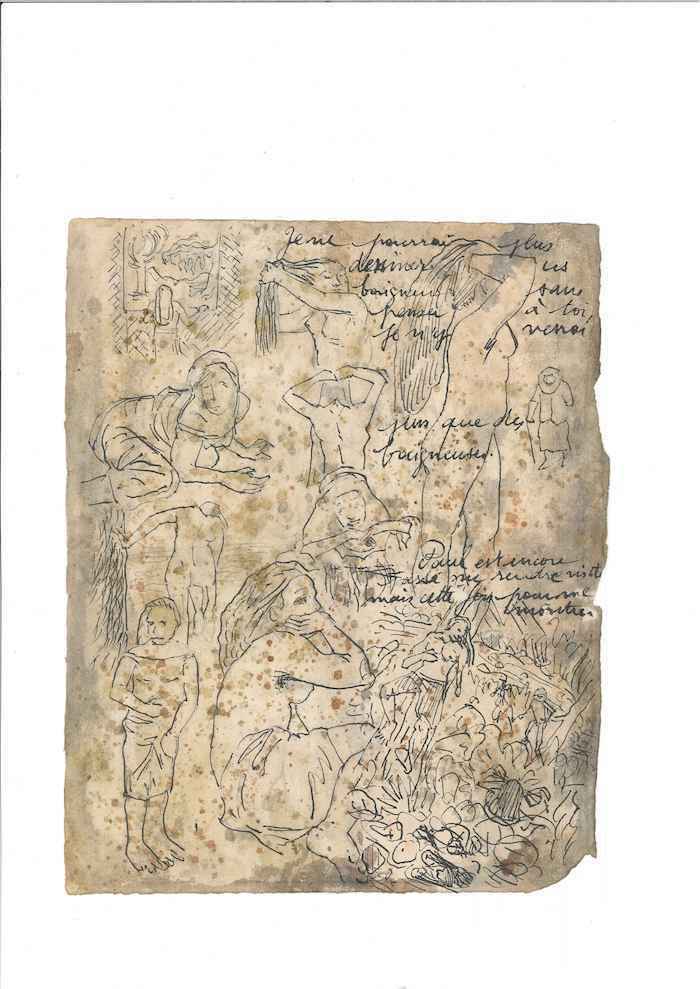 Je ne pourrai plus
dessiner us
baigneu sans
penser à toi,
Je n'y verrai
plus que des
baigneuses.
Paul est encore
passé me rendre visite
mais cette fois pour me
montrer